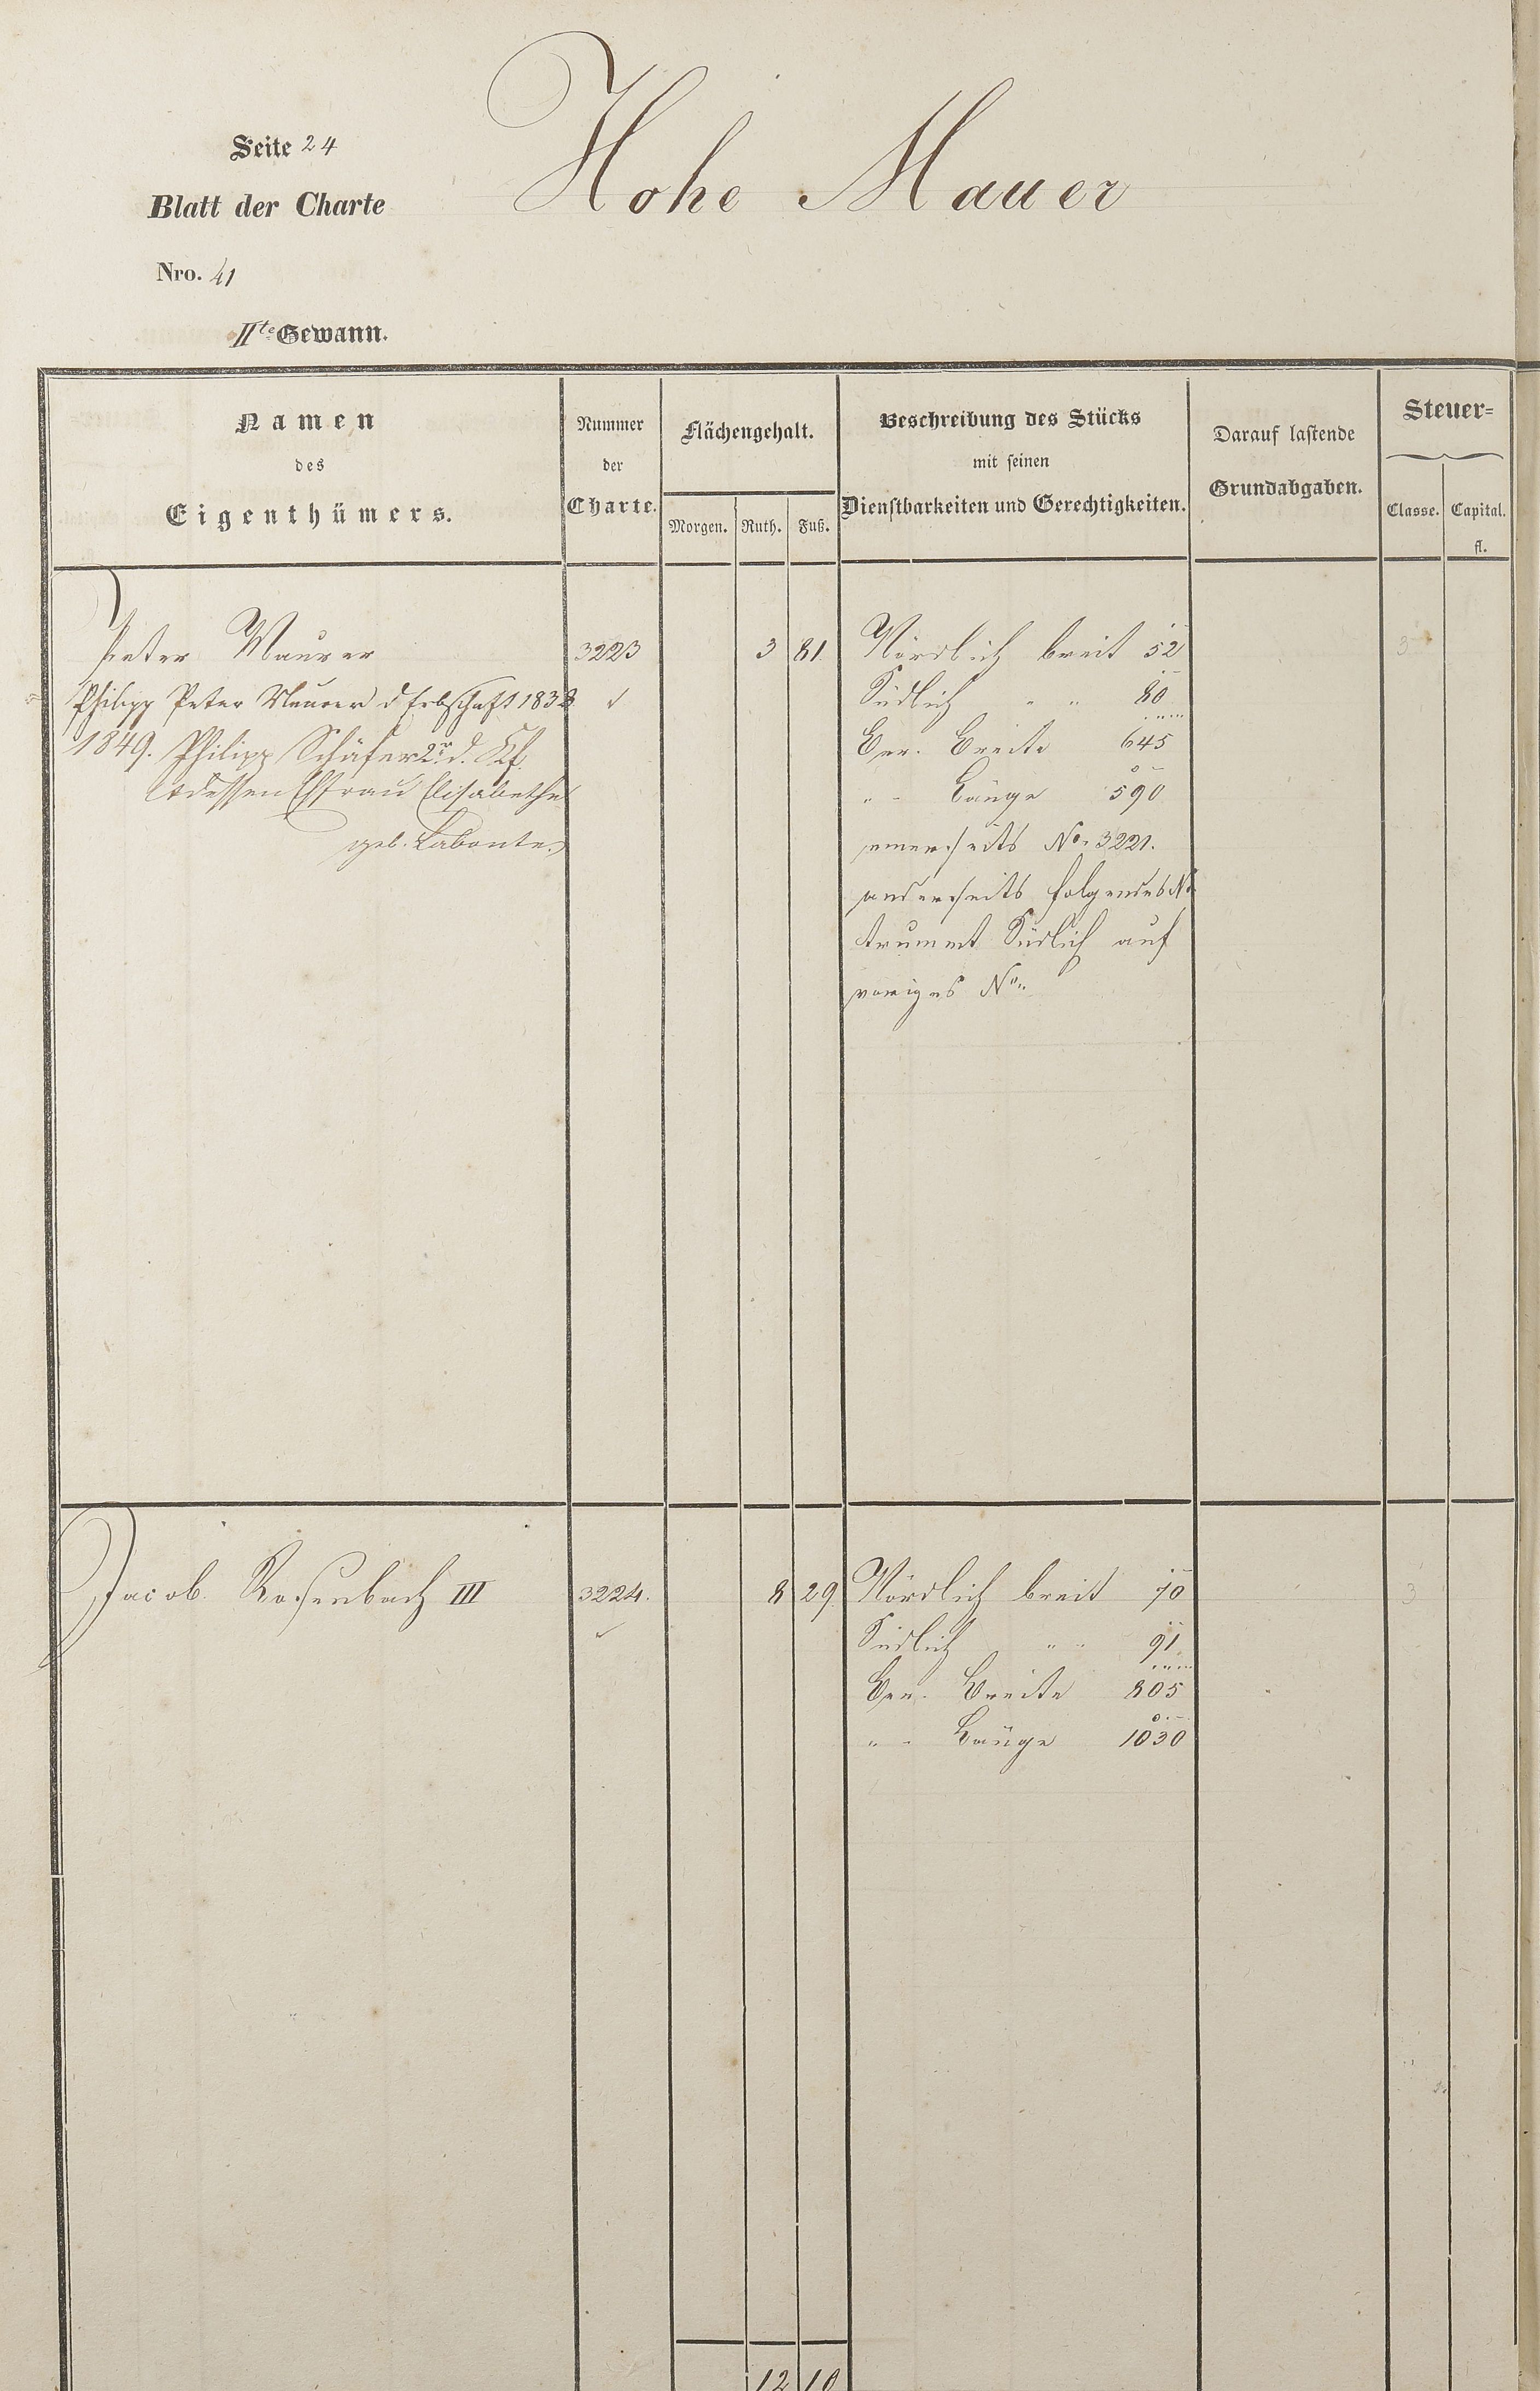 Seite 24
Hohe Mauer
Blatt der Charte
Nro. 41
IIte Gewann.
Namen
des
Eigenthümers.
Nummer
der
Charte.
Flächengehalt.
Morgen. Ruth. Fuß.
Beschreibung des Stücks
mit seinen
Dienstbarkeiten und Gerechtigkeiten.
Darauf lastende
Grundabgaben.
Steuer=
Classe. Capital.
fl.
Peter Maurer 3223 3 81 Nördlich breit 52 3
Philipp Peter Maurer d Erbschaft 1838 Südlich " " 80
1849. Philipp Schäfer 2r. d. Kf. Ber. Breite 645
dessen Ehfrau Elisabetha " - Länge 590
geb. Labonte. einerseits No. 3221.
anderseits folgendes No
trummt Südlich auf
voriges No.
Jacob Rosenbach III 3224. 8 29 Nördlich breit 70 3
Südlich " " 91
Ber. Breite 805
" - Länge 1030
12 10